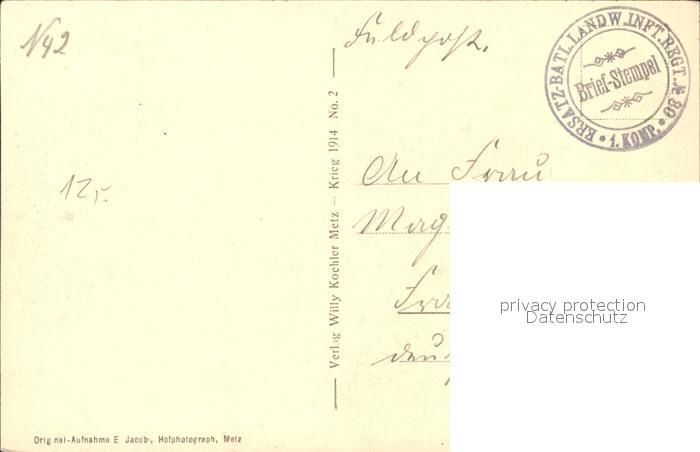 N42
Feldpost.
ERSATZ-BATL.LANDW.INFT.REGT.№80
Brief-Stempel
* 1. KOMP. *
12,-
An Frau
Mag
Fra
Verlag Willy Koehler Metz – Krieg 1914 No. 2
privacy protection
Datenschutz
Orig nal-Aufnahme E Jacobi, Hofphotograph, Metz